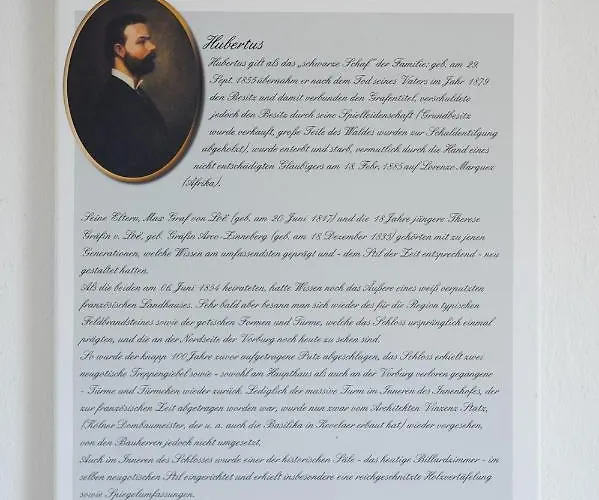 Hubertus
Hubertus gilt als das „schwarze Schaf" der Familie: geb. am 29.
Sept. 1855 übernahm er nach dem Tod seines Vaters im Jahr 1879
den Besitz und damit verbunden den Grafentitel, verschuldete
jedoch den Besitz durch seine Spielleidenschaft (Grundbesitz
wurde verkauft, große Teile des Waldes wurden zur Schuldentilgung
abgeholzt), wurde enterbt und starb, vermutlich durch die Hand eines
nicht entschädigten Gläubigers am 18. Febr. 1885 auf Lorenzo Marquez
(Afrika).
Seine Eltern, Max Graf von Loë (geb. am 20. Juni 1817) und die 18 Jahre jüngere Therese
Gräfin v. Loë, geb. Gräfin Arco-Zinneberg (geb. am 18. Dezember 1835) gehörten mit zu jenen
Generationen, welche Wissen am umfassendsten geprägt und - dem Stil der Zeit entsprechend - neu
gestaltet hatten.
Als die beiden am 06. Juni 1854 heirateten, hatte Wissen noch das Äußere eines weiß verputzten
französischen Landhauses. Sehr bald aber besann man sich wieder des für die Region typischen
Feldbrandsteines sowie der gotischen Formen und Türme, welche das Schloss ursprünglich einmal
prägten, und die an der Nordseite der Vorburg noch heute zu sehen sind.
So wurde der knapp 100 Jahre zuvor aufgetragene Putz abgeschlagen, das Schloss erhielt zwei
neugotische Treppengiebel sowie - sowohl am Haupthaus als auch an der Vorburg verloren gegangene
- Türme und Türmchen wieder zurück. Lediglich der massive Turm im Inneren des Innenhofes, der
zur französischen Zeit abgetragen worden war, wurde nun zwar vom Architekten Vinzenz Statz,
(Kölner Dombaumeister, der u. a. auch die Basilika in Kevelaer erbaut hat) wieder vorgesehen,
von den Bauherren jedoch nicht umgesetzt.
Auch im Inneren des Schlosses wurde einer der historischen Säle - das heutige Billardzimmer - im
selben neugotischen Stil eingerichtet und erhielt insbesondere eine reichgeschnitzte Holzvertäfelung
sowie Spiegelumfassungen.